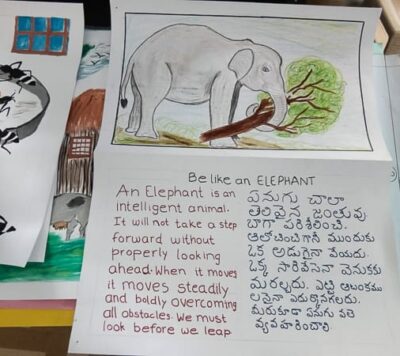 Be like an ELEPHANT
An Elephant is an
intelligent animal.
It will not take a step
forward without
properly looking
ahead. When it moves
it moves steadily
and boldly overcoming
all obstacles. We must
look before we leap
ఏనుగు చాలా
తెలివైన జంతువు.
బాగా పరిశీలించి,
ఆలోచించిగానీ ముందుకు
ఒక అడుగైనా వేయదు.
ఒక్క సారివేసినా వెనుకకు
మరల్చదు. ఎట్టి ఆటంకము
లనైనా ఎదుర్కొనగలదు.
మీరుకూడా ఏనుగు వలె
వ్యవహరించాలి.